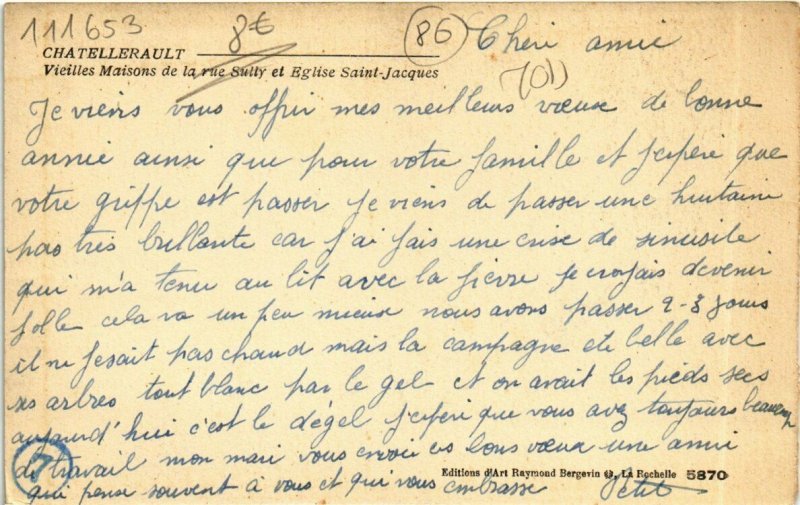 111653
8€
86
Cheri amie
CHATELLERAULT
Vieilles Maisons de la rue Sully et Eglise Saint-Jacques
(701)
Je viens vous offrir mes meilleurs voeuse de bonne
annie ainsi que pour votre famille et j'esperi que
votre grippe est passer je viens de passer une huitaine
pas tres brillante car j'ai fais une crise de sinusite
qui m'a tenu au lit avec la fievre je croyais devenir
folle cela va un peu mieux nous avons passer 2-3 jours
il ne fesait pas chaud mais la campagne ete belle avec
ses arbres tout blanc par le gel et on avait les pieds secs
aujourd'hui c'est le dégel j'esperi que vous avez toujours beaucoup
de travail mon mari vous envoie ces bons voeux une amie
qui pense souvent à vous et qui vous embrasse Petit
7
Editions d'Art Raymond Bergevin, La Rochelle 5870